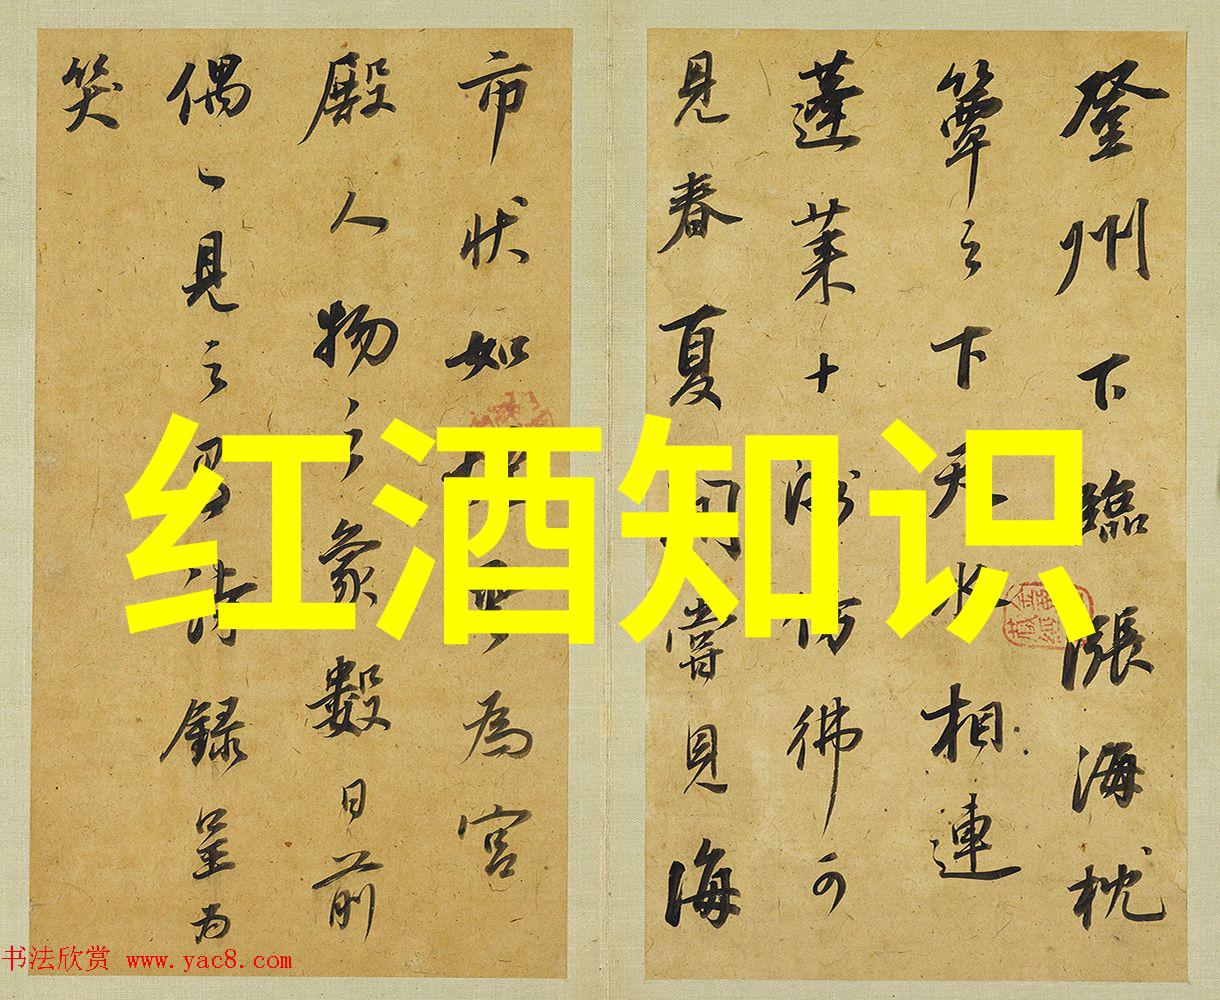 登州下臨漲海枕
簟之下天水相連
蓬莱十洲仿彿可
見春夏間嘗見海
市状如為宮
殿人物之象數日前
偶一見之詩録呈為
笑
红酒知识
书法欣赏 www.yac8.com